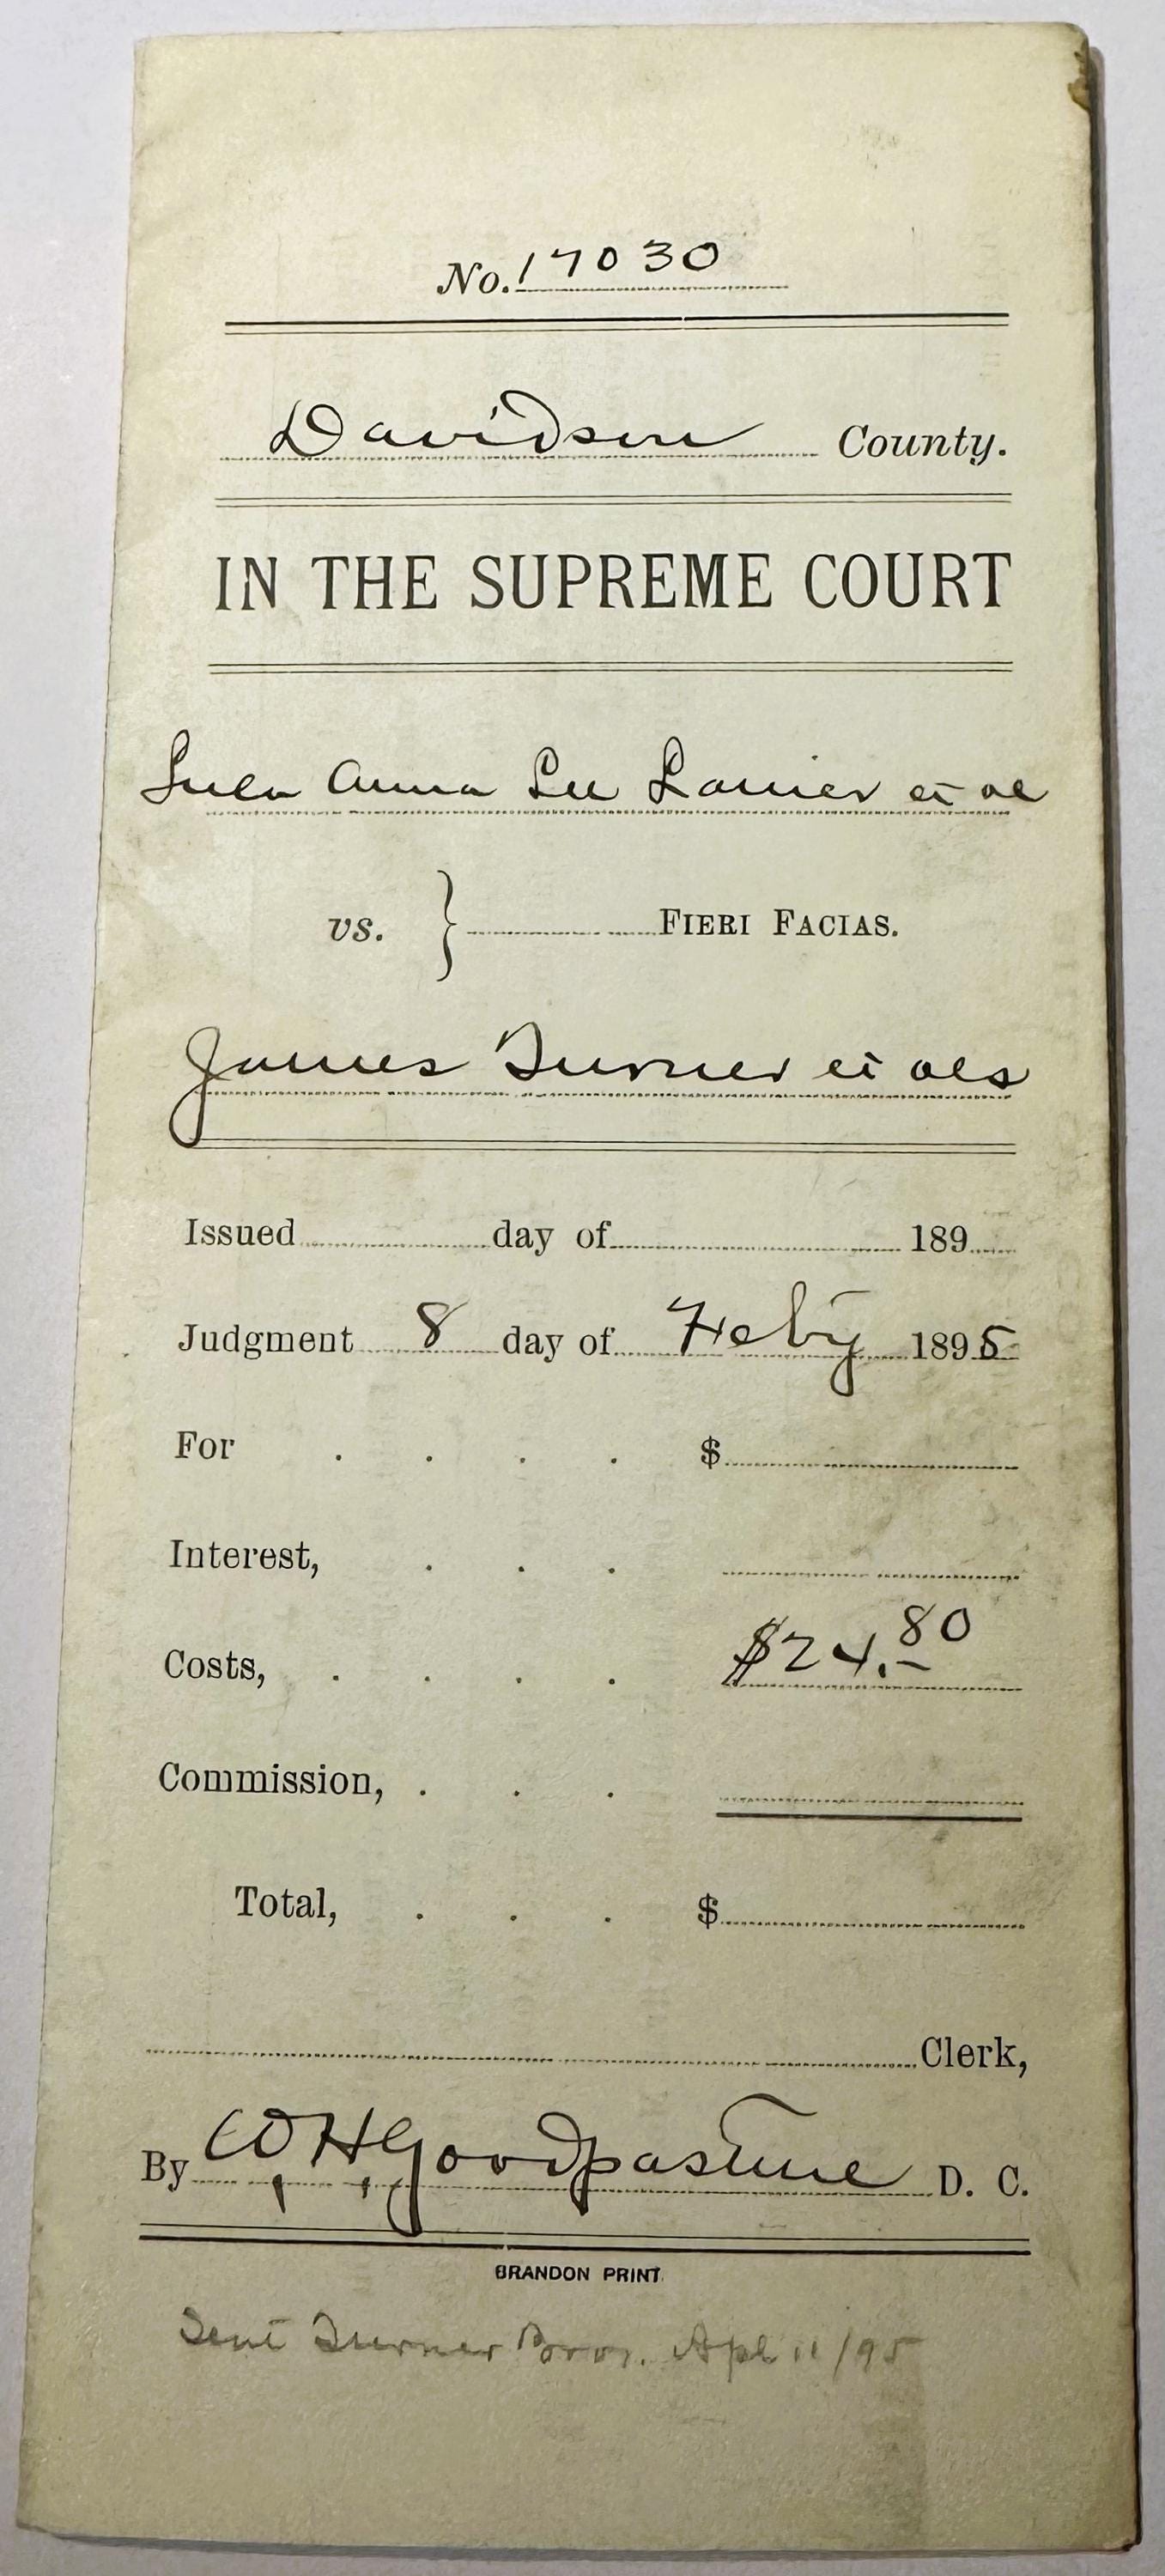 No. 17030
Davidson County.
IN THE SUPREME COURT
Lula Anna Lee Lanier et al
vs. } FIERI FACIAS.
James Turner et als
Issued day of 189
Judgment 8 day of Feby 1895
For . . . . $
Interest, . . .
Costs, . . . . $24.80
Commission, . . .
Total, . . . $
Clerk,
By W.H. Goodpasture D. C.
BRANDON PRINT
Sent Turner Bros. Apl 11/95